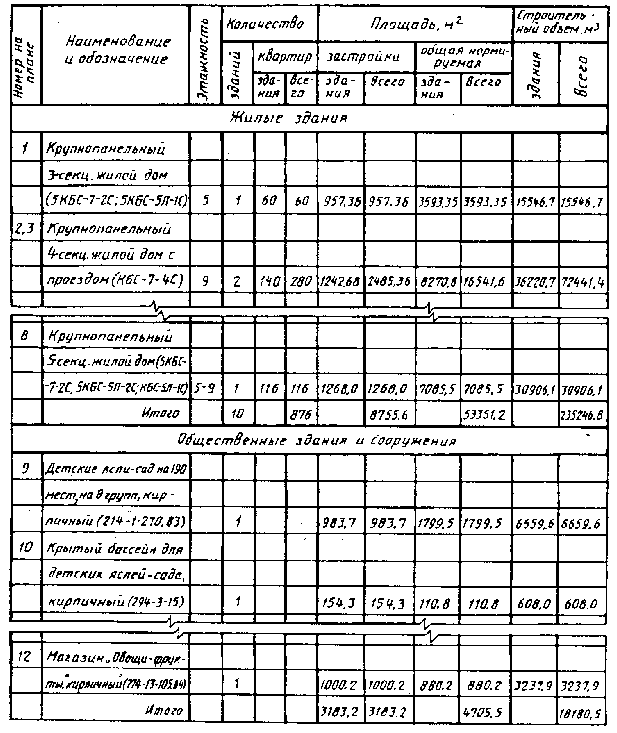 Номер на плане
Наименование и обозначение
Этажность
Количество
Площадь, м²
Строительный объем, м³
зданий
квартир
застройки
общая нормируемая
здания
Всего
здания
всего
здания
Всего
здания
Всего
Жилые здания
1 Крупнопанельный
3-секц. жилой дом
(5КБС-7-2С; 5КБС-5Л-1С) 5 1 60 60 957,36 957,36 3593,35 3593,35 15546,7 15546,7
2,3 Крупнопанельный
4-секц. жилой дом с
проездом (КБС-7-4С) 9 2 140 280 1242,68 2485,36 8270,8 16541,6 36220,7 72441,4
8 Крупнопанельный
5-секц. жилой дом (5КБС-
-7-2С, 5КБС-5Л-2С; КБС-5Л-1С) 5-9 1 116 116 1268,0 1268,0 7085,5 7085,5 30906,1 30906,1
Итого 10 876 8755,6 53351,2 235246,8
Общественные здания и сооружения
9 Детские ясли-сад на 190
мест, на 8 групп, кир-
пичный (214-1-270,83) 1 983,7 983,7 1799,5 1799,5 6559,6 6659,6
10 Крытый бассейн для
детских яслей-сада,
кирпичный (294-3-15) 1 154,3 154,3 110,8 110,8 608,0 608,0
12 Магазин „Овощи-фрук-
ты", кирпичный 1 1000,2 1000,2 880,2 880,2 3237,9 3237,9
Итого 3183,2 3183,2 4705,5 18180,5